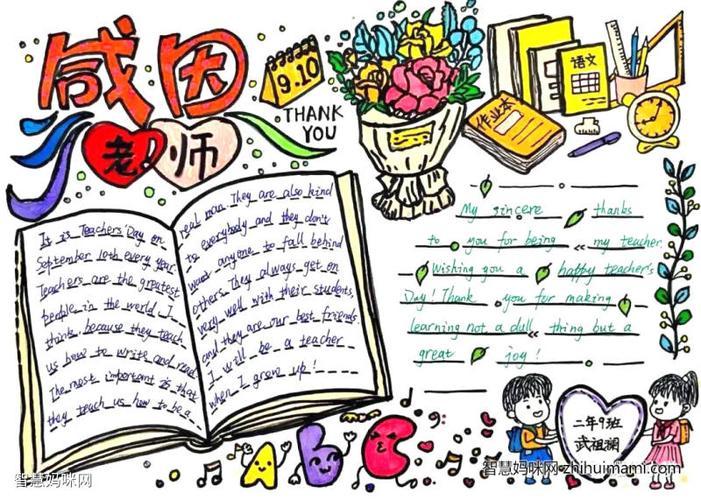 感因
老师
9.10
THANK
YOU
语文
作业本
It is Teachers' Day on
September 10th every year.
Teachers are the greatest
people in the world, I
think, because they teach
us how to write and read
The most important is that
they teach us how to be a
real man. They are also kind
to everybody and they don't
want anyone to fall behind
others. They always get on
very well with their students,
and they are our best friends
I will be a teacher
when I grow up!
My sincere thanks
to you for being my teacher.
Wishing you a happy teacher's
Day! Thank you for making
learning not a dull thing but a
great joy!
ABC
二年9班
武祖
智慧妈咪网
智慧妈咪网 zhihuimami.com